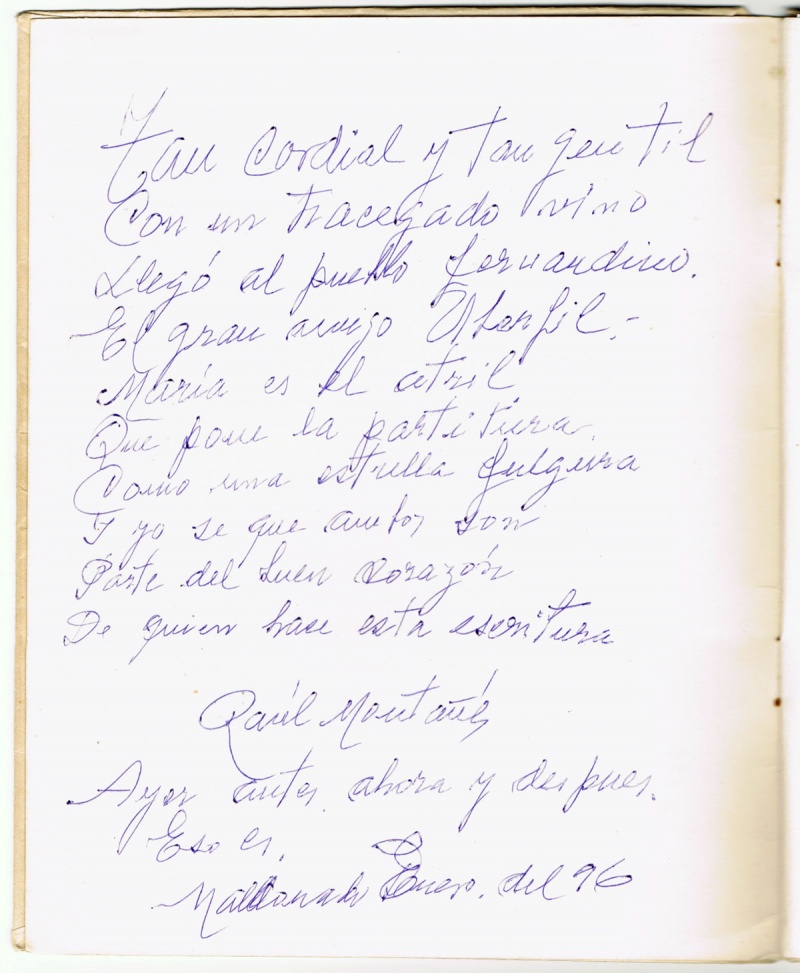 Tan Cordial y tan gentil
Con un tracegado vino
Llegó al pueblo fernandino.
El gran amigo Abenfil.-
María es el atril
Que pone la partitura
Como una estrella fulgura
Y yo se que ambos son
Parte del buen corazón
De quien hase esta escritura
Raúl Montañés
Ayer antes ahora y despues.
Eso es.
Maldonado Enero. del 96